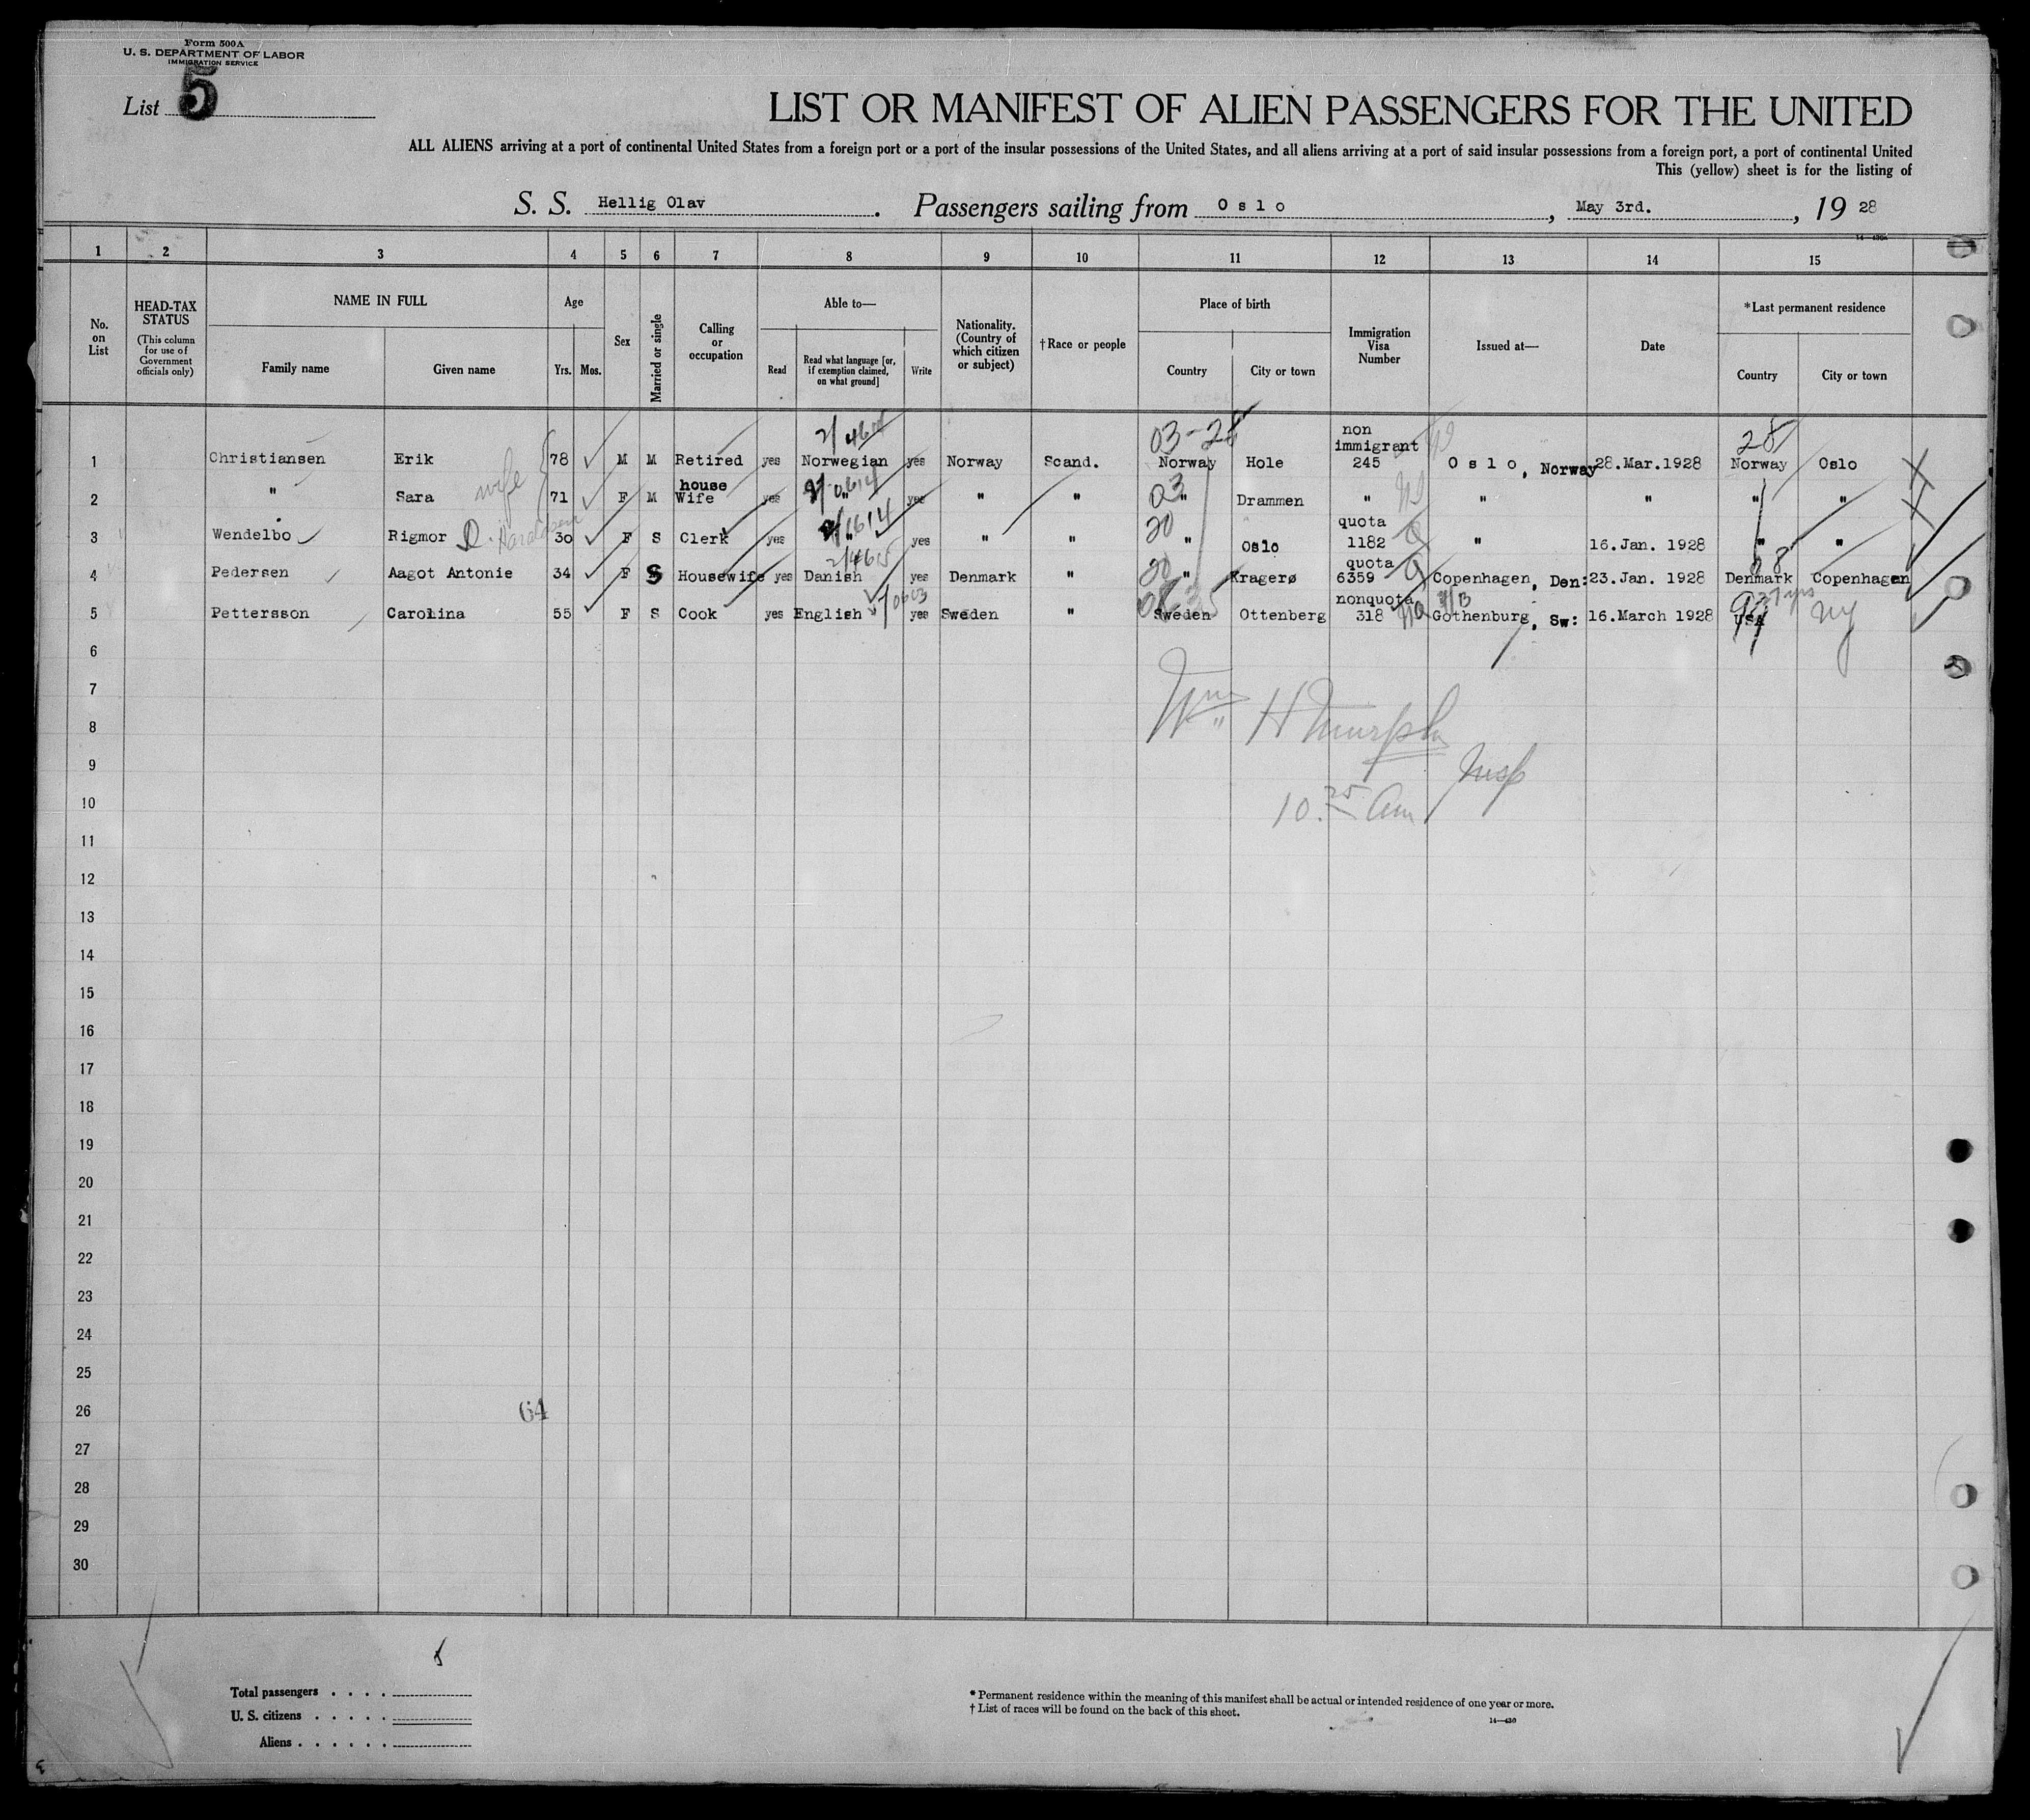 Form 500A
U. S. DEPARTMENT OF LABOR
IMMIGRATION SERVICE
List 5
LIST OR MANIFEST OF ALIEN PASSENGERS FOR THE UNITED
ALL ALIENS arriving at a port of continental United States from a foreign port or a port of the insular possessions of the United States, and all aliens arriving at a port of said insular possessions from a foreign port, a port of continental United
This (yellow) sheet is for the listing of
S. S. Hellig Olav. Passengers sailing from Oslo, May 3rd., 1928
1 2 3 4 5 6 7 8 9 10 11 12 13 14 15
No. on List
HEAD-TAX STATUS (This column for use of Government officials only)
NAME IN FULL
Family name
Given name
Age
Yrs. Mos.
Sex
Married or single
Calling or occupation
Able to—
Read
Read what language [or, if exemption claimed, on what ground]
Write
Nationality. (Country of which citizen or subject)
†Race or people
Place of birth
Country
City or town
Immigration Visa Number
Issued at—
Date
*Last permanent residence
Country
City or town
03-28 28
non immigrant
1 Christiansen Erik 78 M M Retired yes Norwegian yes Norway Scand. Norway Hole 245 Oslo, Norway 28.Mar.1928 Norway Oslo
2 " Sara wife 71 F M house Wife yes " yes " " 03 " Drammen " " " " "
3 Wendelbo Rigmor D. 30 F S Clerk yes " yes " " 20 " Oslo quota 1182 " 16.Jan. 1928 " "
4 Pedersen Aagot Antonie 34 F S Housewife yes Danish yes Denmark " 20 " Kragerø quota 6359 Copenhagen, Den: 23.Jan. 1928 Denmark Copenhagen
5 Pettersson Carolina 55 F S Cook yes English yes Sweden " Sweden Ottenberg nonquota 318 Gothenburg, Sw: 16.March 1928 USA NY
6
7
Wm H Murphy
8
9
Insp
10
10.25 Am
11
12
13
14
15
16
17
18
19
20
21
22
23
24
25
26
64
27
28
29
30
5
Total passengers . . . .
U. S. citizens . . . . .
Aliens . . . . . .
* Permanent residence within the meaning of this manifest shall be actual or intended residence of one year or more.
† List of races will be found on the back of this sheet.
14—430